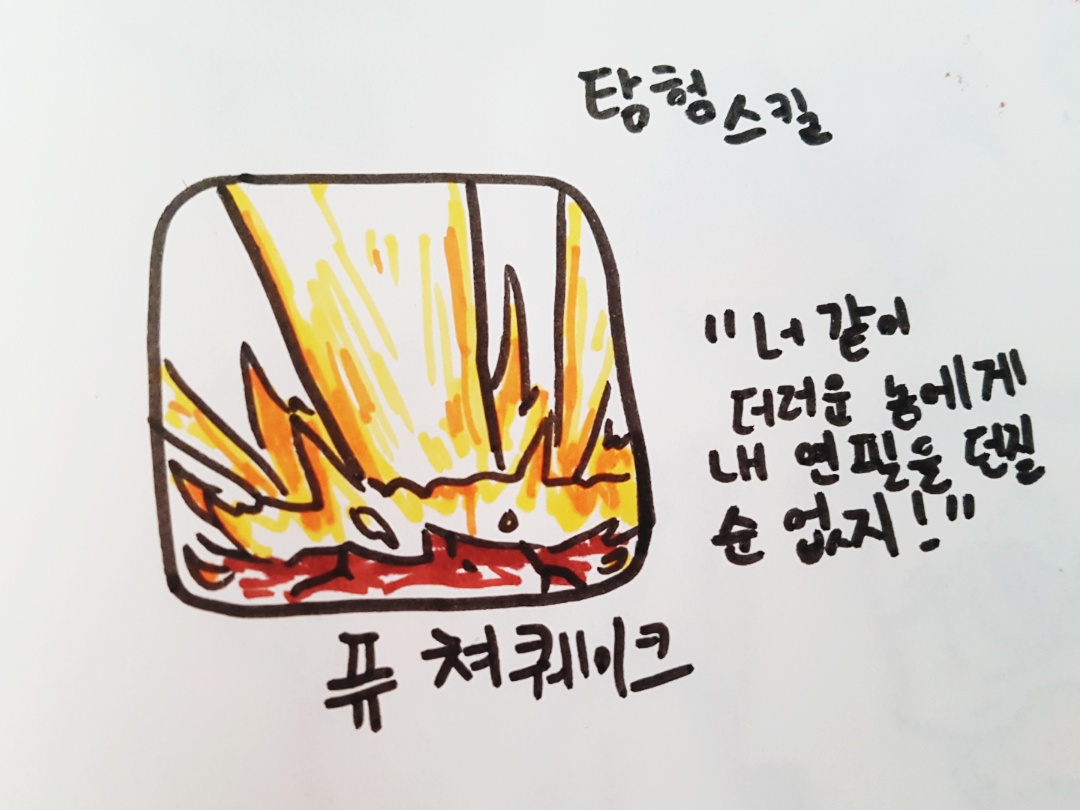 탐험스킬
"너 같이
더러운 놈에게
내 연필을 던질
순 없지!"
퓨쳐퀘이크